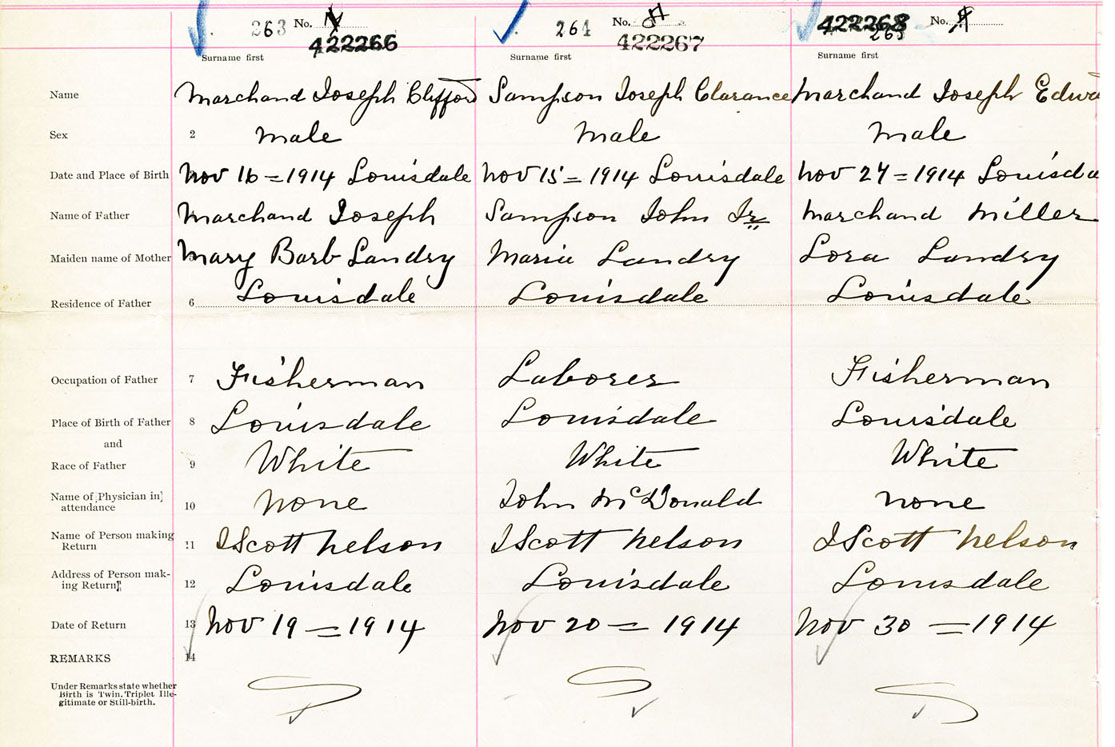 263 No.
422266
264 No.
422267
422268 No.
265
Surname first Surname first Surname first
Name Marchand Joseph Clifford Sampson Joseph Clarance Marchand Joseph Edwa
Sex 2 Male Male Male
Date and Place of Birth Nov 16 = 1914 Louisdale Nov 15 = 1914 Louisdale Nov 27 = 1914 Louisda
Name of Father Marchand Joseph Sampson John Jr Marchand Miller
Maiden name of Mother Mary Barb Landry Maria Landry Lora Landry
Residence of Father 6 Louisdale Louisdale Louisdale
Occupation of Father 7 Fisherman Laborer Fisherman
Place of Birth of Father 8 Louisdale Louisdale Louisdale
and
Race of Father 9 White White White
Name of [Physician in]
attendance 10 none John McDonald none
Name of Person making
Return 11 I Scott Nelson I Scott Nelson I Scott Nelson
Address of Person mak-
ing Return 12 Louisdale Louisdale Louisdale
Date of Return 13 Nov 19 = 1914 Nov 20 = 1914 Nov 30 = 1914
REMARKS 14
Under Remarks state whether
Birth is Twin, Triplet Ille-
gitimate or Still-birth.